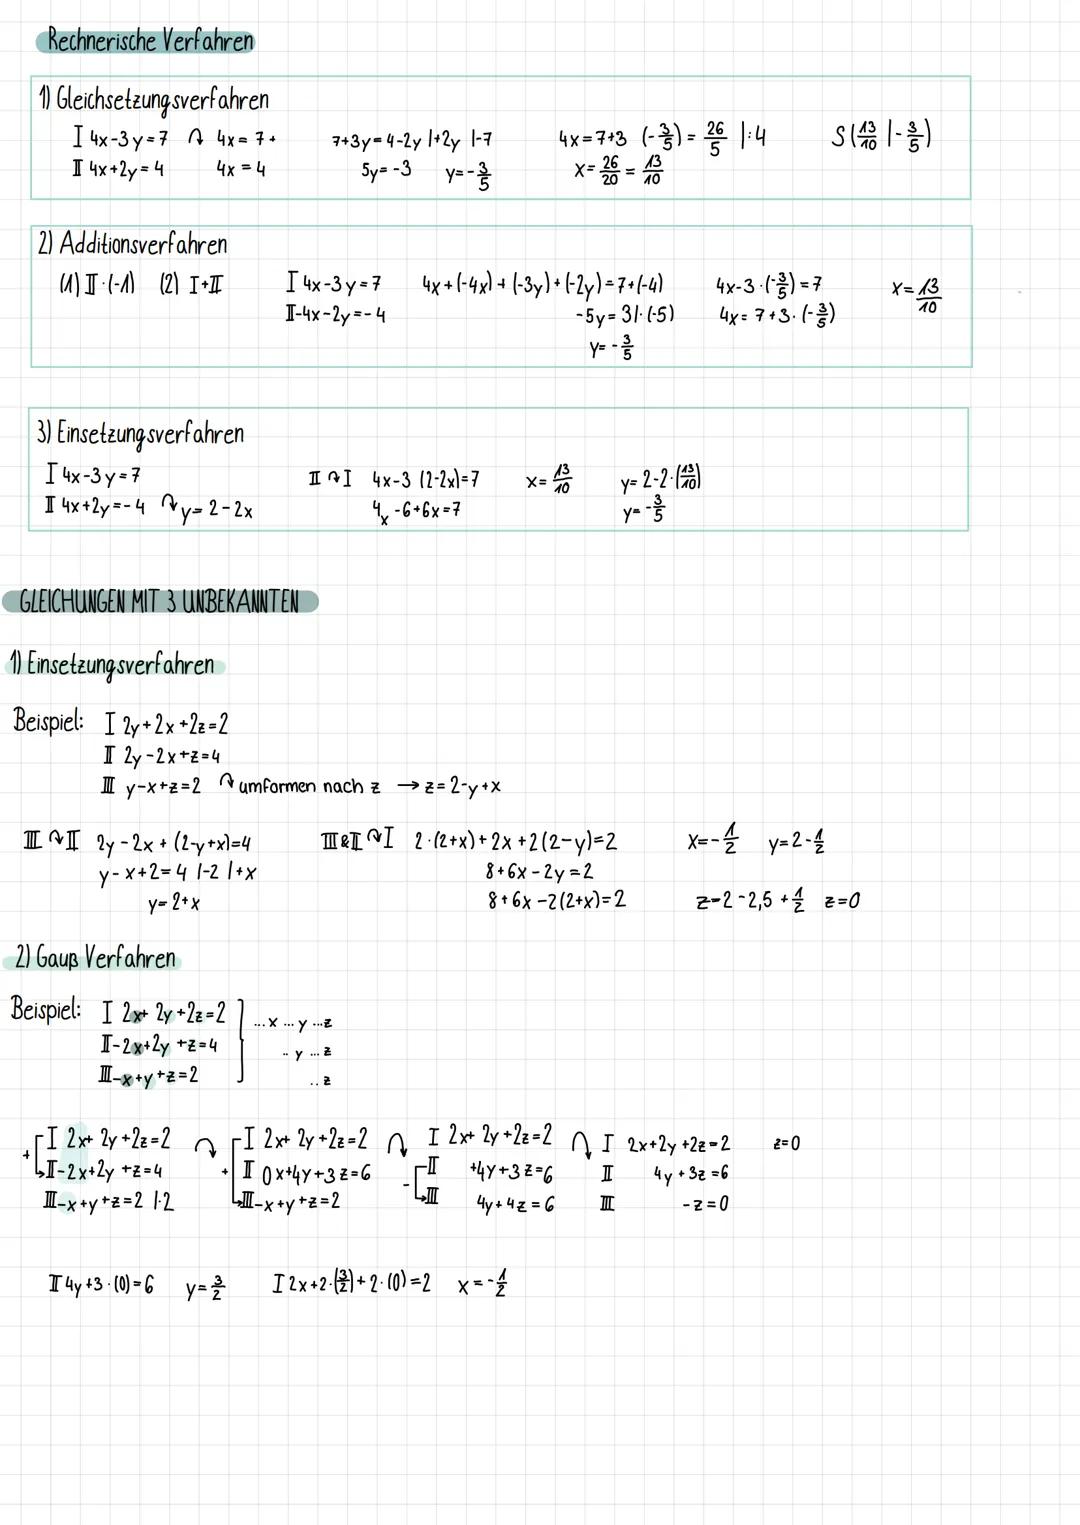 Rechnerische Verfahren
1) Gleichsetzungsverfahren
I 4x-3y=7 ↷ 4x = 7+ 7+3y=4-2y |+2y |-7 4x=7+3 (-3/5) = 26/5 |:4 S(13/10 | -3/5)
II 4x+2y=4 4x=4 5y=-3 y=-3/5 x= 26/20 = 13/10
2) Additionsverfahren
(1) II·(-1) (2) I+II I 4x-3y=7 4x+(-4x)+(-3y)+(-2y)=7+(-4) 4x-3·(-3/5)=7 x=13/10
II-4x-2y=-4 -5y=3|·(-5) 4x=7+3·(-3/5)
y=-3/5
3) Einsetzungsverfahren
I 4x-3y=7 II ↷ I 4x-3 (2-2x)=7 x=13/10 y=2-2·(13/10)
II 4x+2y=-4 ↷ y=2-2x 4x-6+6x=7 y=-3/5
GLEICHUNGEN MIT 3 UNBEKANNTEN
1) Einsetzungsverfahren
Beispiel: I 2y+2x+2z=2
II 2y-2x+z=4
III y-x+z=2 ↷ umformen nach z → z=2-y+x
III ↷ II 2y-2x+(2-y+x)=4 III & II ↷ I 2·(2+x)+2x+2(2-y)=2 x=-1/2 y=2-1/2
y-x+2=4 |-2 |+x 8+6x-2y=2
y=2+x 8+6x-2(2+x)=2 z=2-2,5+1/2 z=0
2) Gauß Verfahren
Beispiel: I 2x+2y+2z=2 } ...x ...y ...z
II-2x+2y+z=4 ..y ...z
III-x+y+z=2 ..z
+ I 2x+2y+2z=2 ↷ I 2x+2y+2z=2 ↷ I 2x+2y+2z=2 ↷ I 2x+2y+2z=2 z=0
II-2x+2y+z=4 + II 0x+4y+3z=6 - II +4y+3z=6 II 4y+3z=6
III-x+y+z=2 |·2 III-x+y+z=2 III 4y+4z=6 III -z=0
II 4y+3·(0)=6 y=3/2 I 2x+2·(3/2)+2·(0)=2 x=-1/2